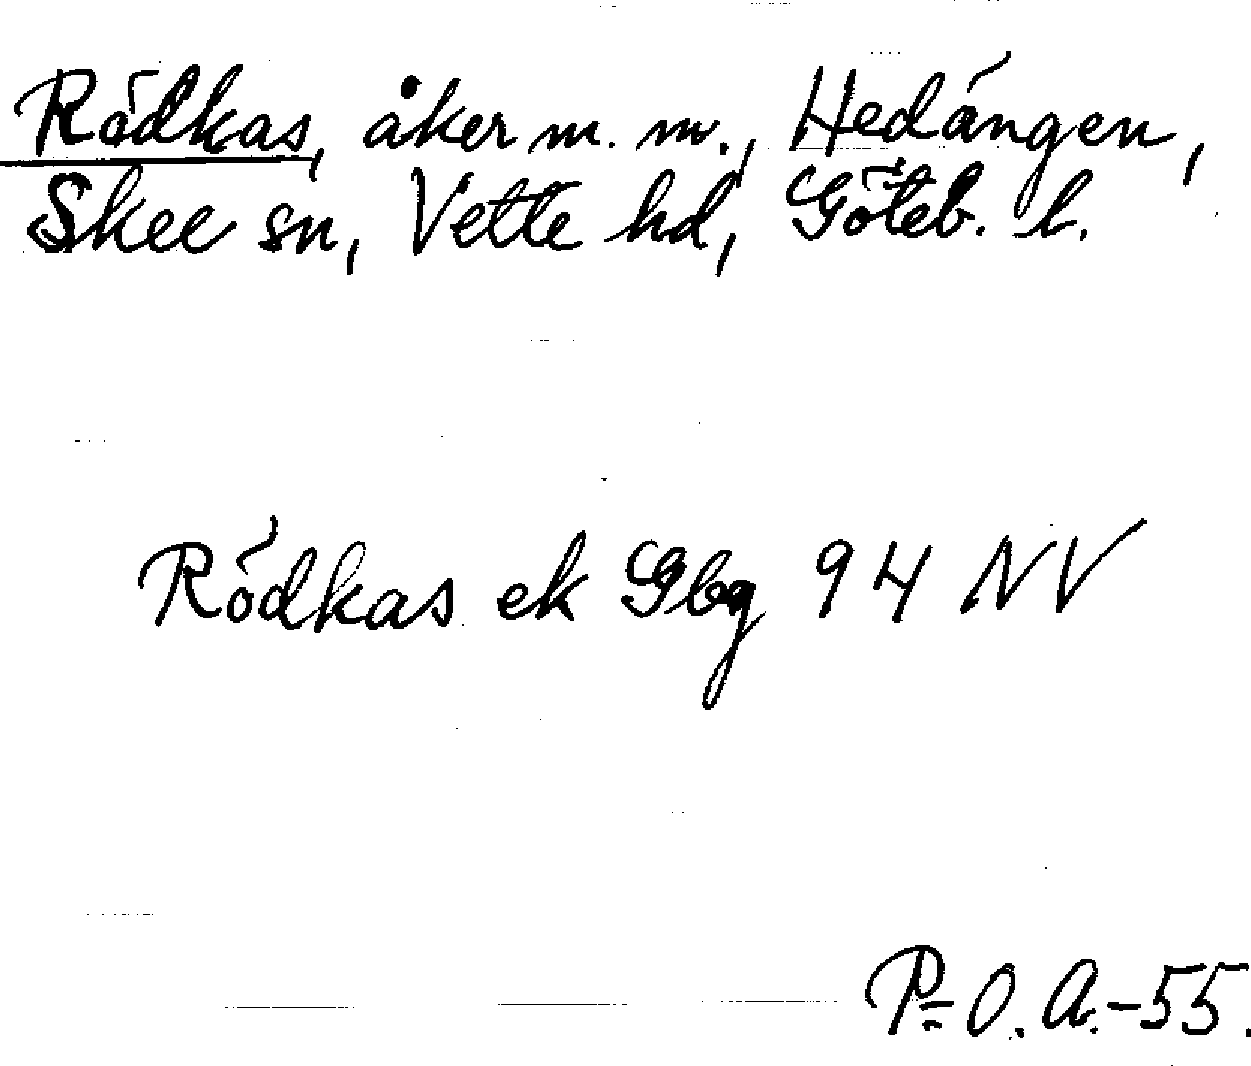 Rödkas, åker m. m., Hedängen,
Skee sn, Vette hd, Göteb. l.
Rödkas ek Gbg 94 NV
P-O.A.-55.